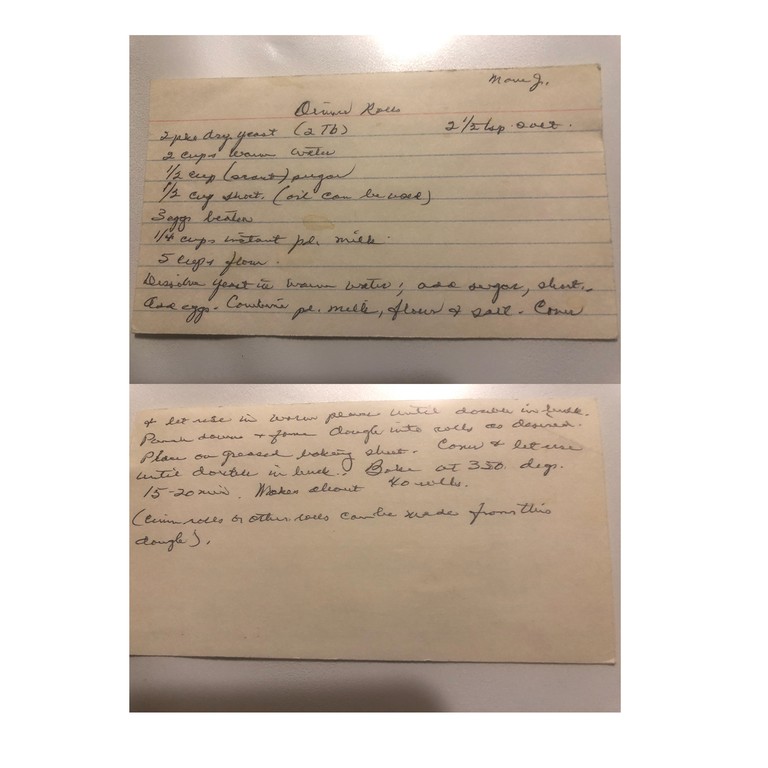 Dinner Rolls
2 pks dry yeast (2 Tb) 2 1/2 tsp salt.
2 cups warm water
1/2 cup (scant) sugar
1/2 cup short. (oil can be used)
3 eggs beaten
1/4 cups instant pd. milk.
5 cups flour.
Dissolve yeast in warm water; add sugar, short.
Add eggs. Combine pd. milk, flour & salt. Cover
& let rise in warm place until double in bulk.
Punch down & form dough into rolls as desired.
Place on greased baking sheet. Cover & let rise
until double in bulk. Bake at 350 degs.
15-20 min. Makes about 40 rolls.
(Cinn. rolls or other rolls can be made from this
dough).